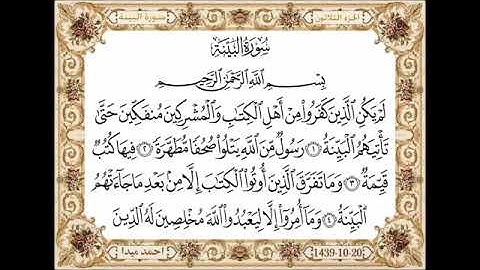 سورة البينة الجزء الثلاثون
سُورَةُ الْبَيِّنَةِ
بِسْمِ اللَّهِ الرَّحْمَٰنِ الرَّحِيمِ
لَمْ يَكُنِ الَّذِينَ كَفَرُوا مِنْ أَهْلِ الْكِتَابِ وَالْمُشْرِكِينَ مُنفَكِّينَ حَتَّىٰ
تَأْتِيَهُمُ الْبَيِّنَةُ ١ رَسُولٌ مِّنَ اللَّهِ يَتْلُوا صُحُفًا مُّطَهَّرَةً ٢ فِيهَا كُتُبٌ
قَيِّمَةٌ ٣ وَمَا تَفَرَّقَ الَّذِينَ أُوتُوا الْكِتَابَ إِلَّا مِن بَعْدِ مَا جَاءَتْهُمُ
الْبَيِّنَةُ ٤ وَمَا أُمِرُوا إِلَّا لِيَعْبُدُوا اللَّهَ مُخْلِصِينَ لَهُ الدِّينَ
احمد ميدا 1439-10-20